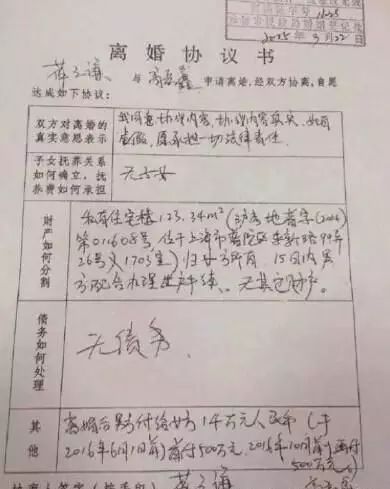 2015年9月22日
离婚协议书
与 申请离婚,经双方协商,自愿
达成如下协议:
双方对离婚的
真实意思表示
我同意协议内容,协议内容真实,如有
虚假,愿承担一切法律责任.
子女抚养关系
如何确立,抚
养费如何承担
无子女
财产如何分割
私有住宅楼123.34m²(沪房地普字(2006)
第011608号,位于上海市普陀区东新路99弄
26号1703室)归女方所有 15日内男
方配合办理过户手续、无其它财产。
债务如何处理
无债务.
其他
离婚后男方付给女方1千万元人民币(于
2016年6月1日前)首付500万元,2016年10月前再付
500万元)